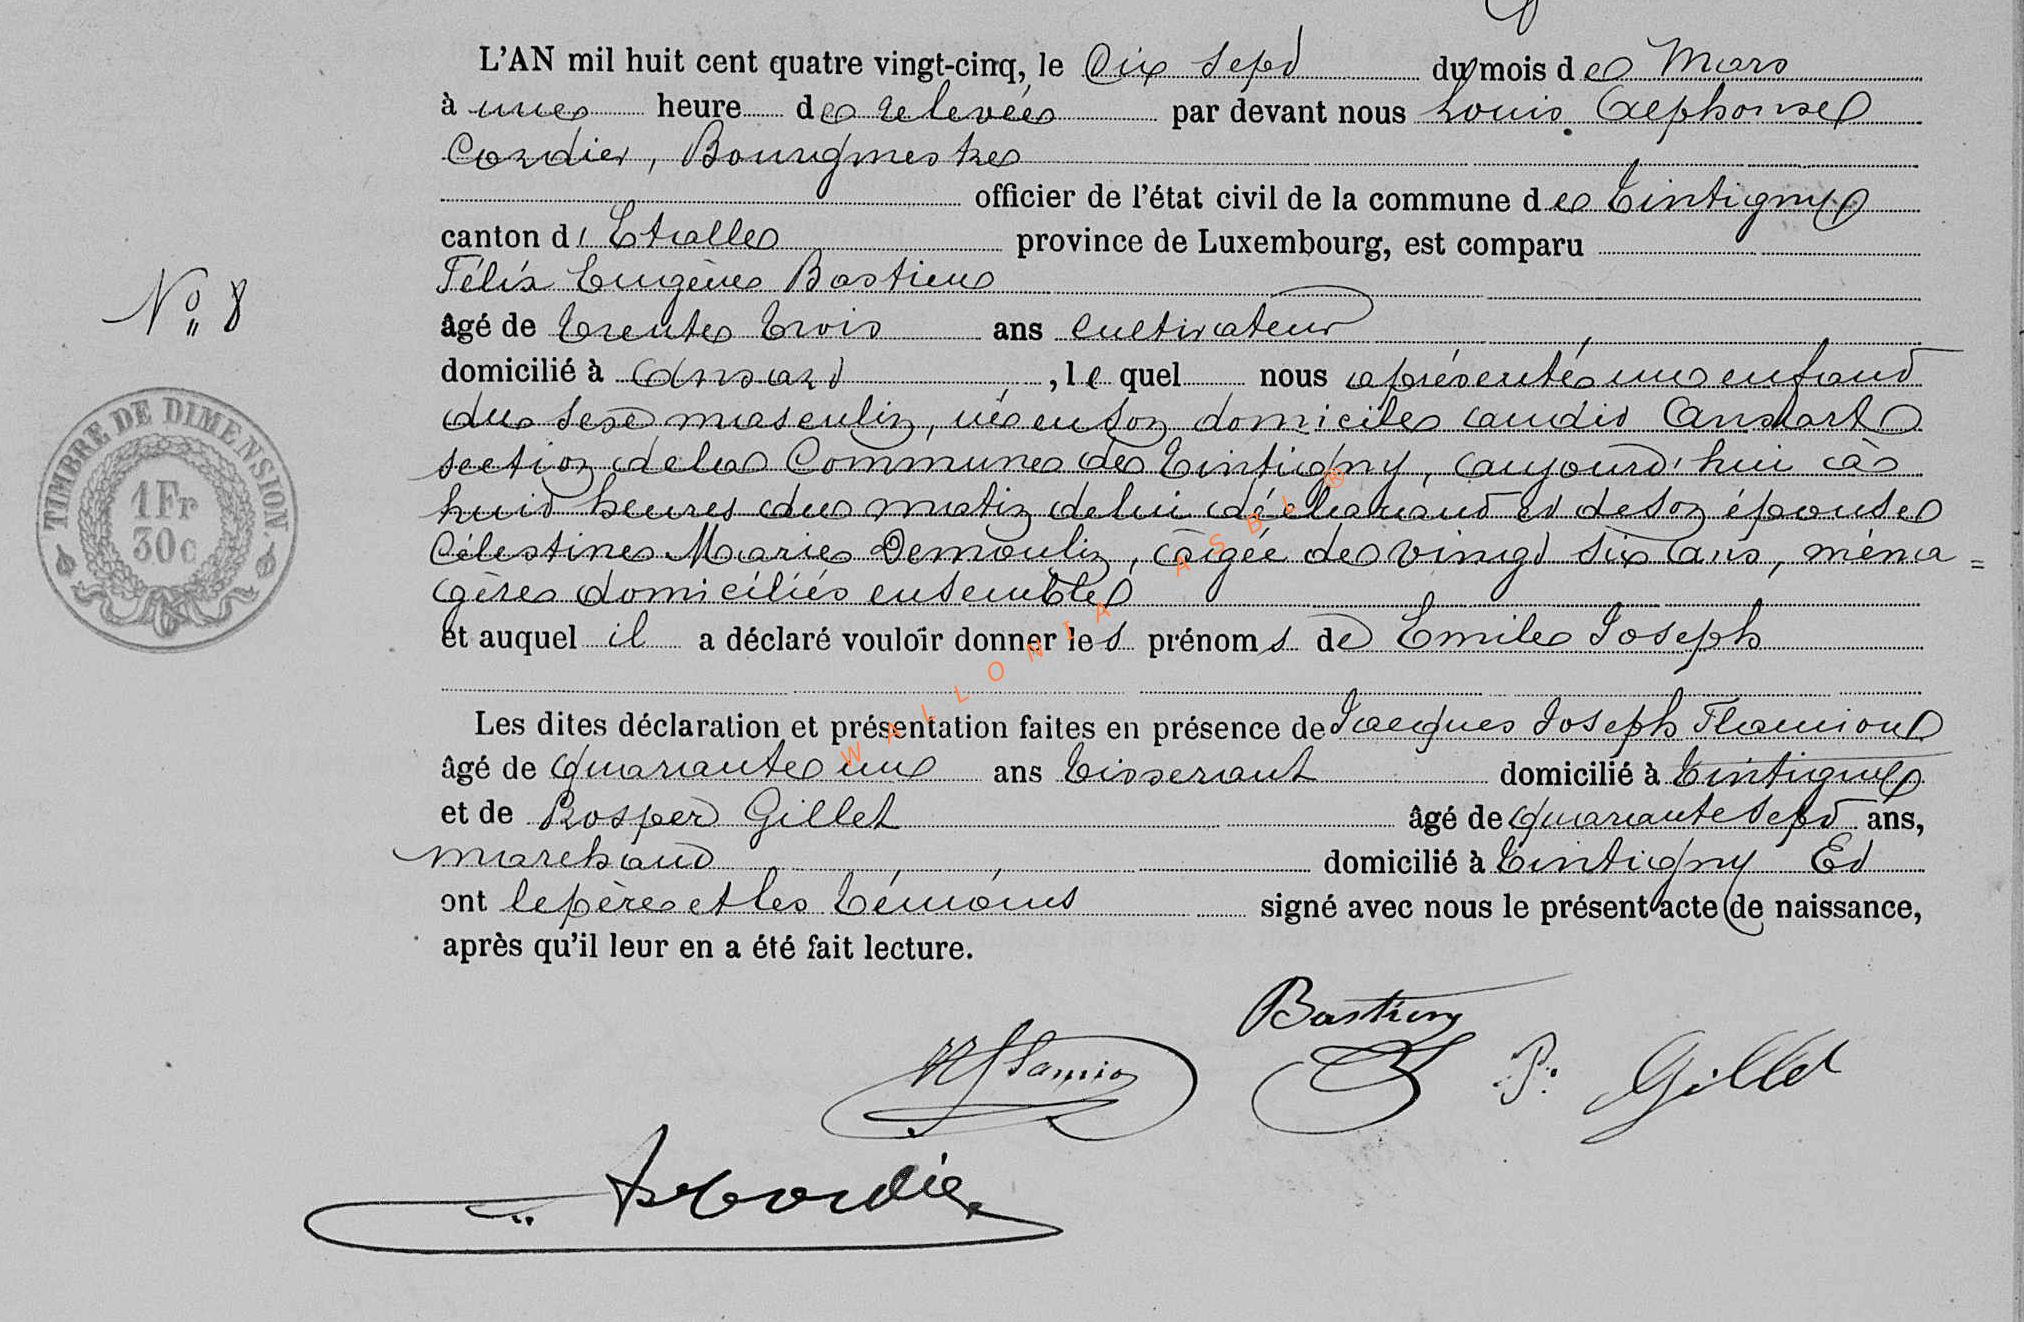 L'AN mil huit cent quatre vingt-cinq, le Dix Sept du mois de Mars
à une heure de relevée par devant nous Louis Alphonse
Cordier, Bourgmestre
officier de l'état civil de la commune de Tintigny
canton d'Etalle province de Luxembourg, est comparu
Félix Eugène Bastien
N° 8
âgé de trente trois ans cultivateur
domicilié à Ansart, lequel nous a présenté un enfant
du sexe masculin, né en son domicile audit Ansart
section de la Commune de Tintigny, aujourd'hui à
huit heures du matin de lui déclarant et de son épouse
Célestine Marie Demoulin, âgée de vingt six ans, ména=
gère domiciliés ensemble
et auquel il a déclaré vouloir donner les prénoms de Emile Joseph
Les dites déclaration et présentation faites en présence de Jacques Joseph Flamion
âgé de quarante un ans tisserant domicilié à Tintigny
et de Prosper Gillet âgé de quarante sept ans,
marchand domicilié à Tintigny Et
ont le père et les témoins signé avec nous le présent acte de naissance,
après qu'il leur en a été fait lecture.
TIMBRE DE DIMENSION.
1 Fr
30 c
WALLONIA ASBL ®
Bastien
Flamion
P. Gillet
Cordier